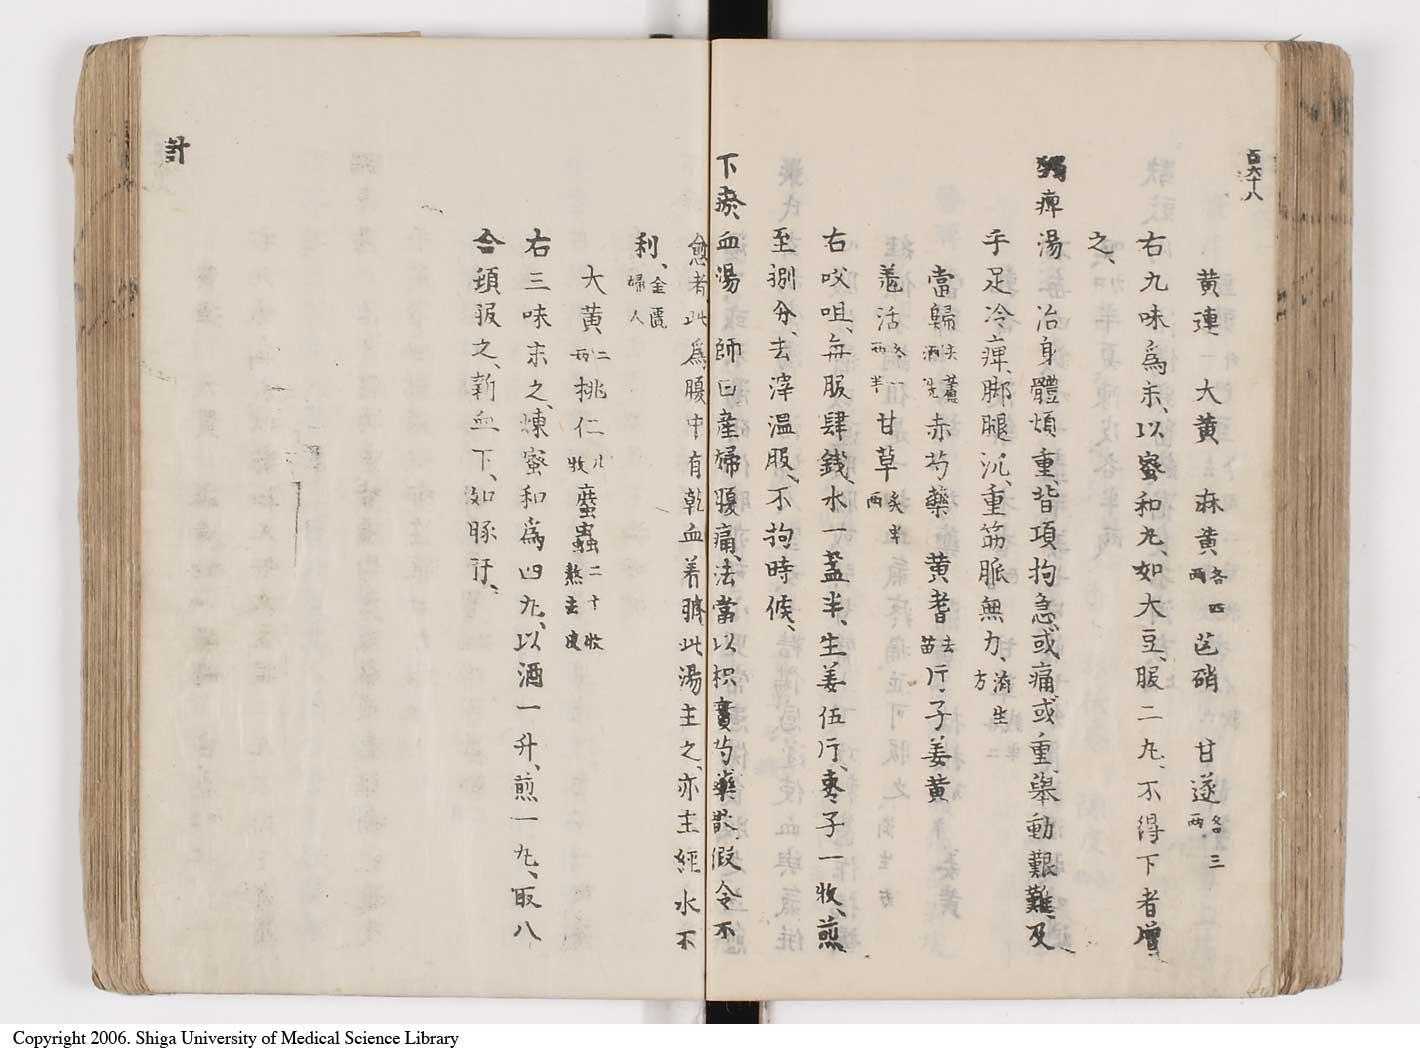 百六十八
黄連　大黄　麻黄各四兩　芒硝　甘遂各三兩
右九味為末、以蜜和丸、如大豆、服二丸、不得下者増
之、
蠲痺湯治身體煩重、背項拘急、或痛或重、舉動艱難、及
手足冷痺、脚腿沉重、筋脈無力、済生方
當歸去蘆酒洗　赤芍藥　黄耆去苗　片子姜黄
羗活各一兩半　甘草炙半兩
右㕮咀、毎服肆錢、水一盞半、生姜伍片、枣子一枚、煎
至捌分、去滓温服、不拘時候、
下瘀血湯師曰産婦腹痛、法當以枳實芍藥散、假令不
愈者、此為腹中有乾血着臍、此湯主之、亦主經水不
利、金匱婦人
大黄二兩　桃仁八枚　䗪蟲二十枚熬去皮
右三味末之、煉蜜和為四丸、以酒一升、煎一丸、取八
合頓服之、新血下、如豚肝、
計
Copyright 2006. Shiga University of Medical Science Library